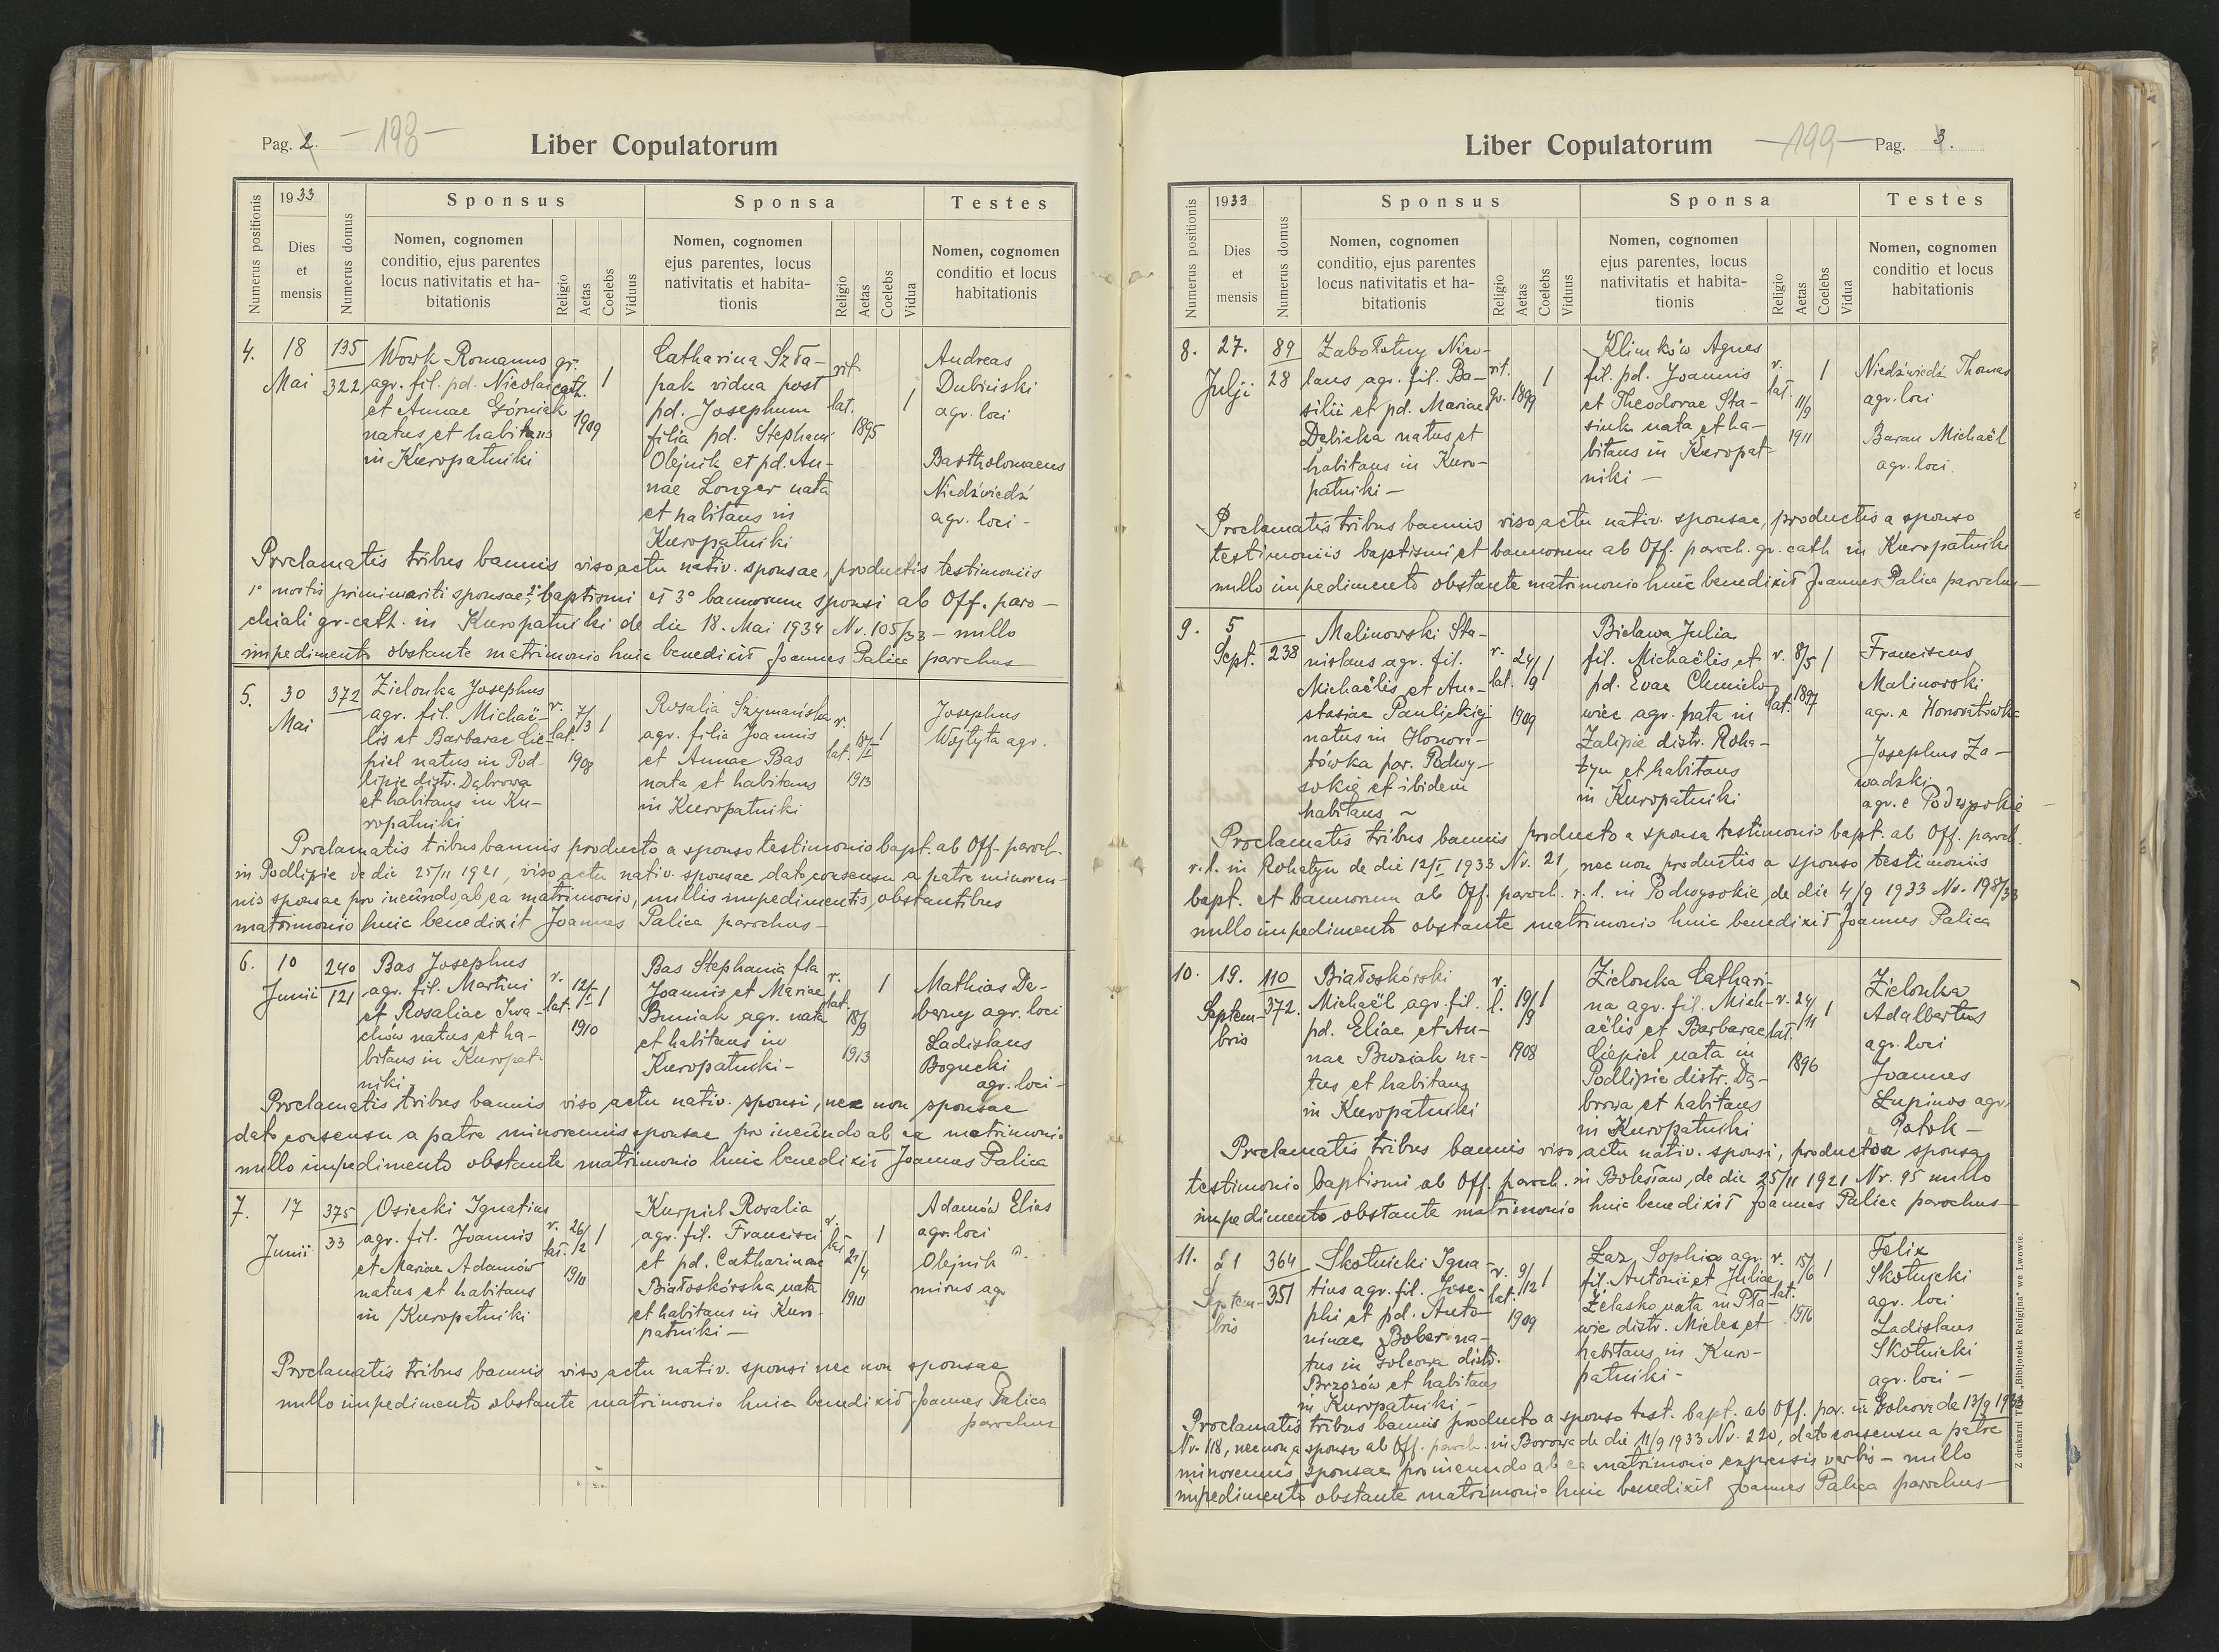 Pag. 2. -198-
Liber Copulatorum
Numerus positionis
1933
Dies
et
mensis
Numerus domus
Sponsus
Nomen, cognomen
conditio, ejus parentes
locus nativitatis et ha-
bitationis
Religio
Aetas
Coelebs
Viduus
Sponsa
Nomen, cognomen
ejus parentes, locus
nativitatis et habita-
tionis
Religio
Aetas
Coelebs
Vidua
Testes
Nomen, cognomen
conditio et locus
habitationis
4.
18
Mai
135
322
Wowk Romanus
agr. fil. pd. Nicolai
et Annae Górniak
natus et habitans
in Kuropatniki
gr.
cath.
1909
1
Catharina Szła-
pak vidua post
pd. Josephum
filia pd. Stephani
Olejnik et pd. An-
nae Longer nata
et habitans in
Kuropatniki
rit.
lat.
1895
1
Andreas
Dubiński
agr. loci
Bartholomaeus
Niedźwiedź
agr. loci -
Proclamatis tribus bannis viso actu nativ. sponsae, productis testimoniis
1° mortis primi mariti sponsae, 2° baptismi et 3° bannorum sponsi ab Off. paro-
chiali gr.-cath. in Kuropatniki de die 18. Mai 1934 Nr. 105/33 - nullo
impedimento obstante matrimonio huic benedixit Joannes Palica parochus
5.
30
Mai
372
Zielonka Josephus
agr. fil. Michaë-
lis et Barbarae Cie-
piel natus in Pod-
lipie distr. Dąbrowa
et habitans in Ku-
ropatniki
r.
lat.
7/
/3
1908
1
Rosalia Szymańska
agr. filia Joannis
et Annae Bas
nata et habitans
in Kuropatniki
r.
lat.
18/I
1913
1
Josephus
Wojtyta agr.
Proclamatis tribus bannis producto a sponso testimonio bapt. ab Off. paroch.
in Podlipie de die 25/11 1921, viso actu nativ. sponsae dato consensu a patre minoren-
nis sponsae pro ineundo ab ea matrimonio, nullis impedimentis obstantibus
matrimonio huic benedixit Joannes Palica parochus -
6.
10
Junii
240
121
Bas Josephus
agr. fil. Martini
et Rosaliae Iwa-
chów natus et ha-
bitans in Kuropat-
niki
r.
lat.
12/I
1910
1
Bas Stephania fla
Joannis et Mariae
Buniak agr. nata
et habitans in
Kuropatniki -
r.
lat.
18/9
1913
1
Mathias De-
berny agr. loci
Ladislaus
Bogucki
agr. loci -
Proclamatis tribus bannis viso actu nativ. sponsi, nec non sponsae
dato consensu a patre minorennis sponsae pro ineundo ab ea matrimonio
nullo impedimento obstante matrimonio huic benedixit Joannes Palica
7.
17
Junii
375
33
Osiecki Ignatius
agr. fil. Joannis
et Mariae Adamów
natus et habitans
in Kuropatniki
r.
lat.
26/2
1910
1
Kurpiel Rosalia
agr. fil. Francisci
et pd. Catharinae
Białoskórska nata
et habitans in Kuro-
patniki -
r.
lat.
21/4
1910
1
Adamów Elias
agr. loci
Olejnik
mirus agr
Proclamatis tribus bannis viso actu nativ. sponsi nec non sponsae
nullo impedimento obstante matrimonio huic benedixit Joannes Palica
parochus
Liber Copulatorum
-199- Pag. 3.
Numerus positionis
1933
Dies
et
mensis
Numerus domus
Sponsus
Nomen, cognomen
conditio, ejus parentes
locus nativitatis et ha-
bitationis
Religio
Aetas
Coelebs
Viduus
Sponsa
Nomen, cognomen
ejus parentes, locus
nativitatis et habita-
tionis
Religio
Aetas
Coelebs
Vidua
Testes
Nomen, cognomen
conditio et locus
habitationis
8.
27.
Julji
89
28
Zabołotny Nico-
laus agr. fil. Ba-
silii et pd. Mariae
Dębicka natus et
habitans in Kuro-
patniki -
rit.
gr.
1899
1
Klimków Agnes
fil. pd. Joannis
et Theodorae Sta-
siuk nata et ha-
bitans in Kuropat-
niki -
r.
lat.
11/9
1911
1
Niedźwiedź Thomas
agr. loci
Baran Michaël
agr. loci.
Proclamatis tribus bannis viso actu nativ. sponsae, productis a sponso
testimoniis baptismi et bannorum ab Off. paroch. gr. cath in Kuropatniki
nullo impedimento obstante matrimonio huic benedixit Joannes Palica parochus -
9.
5
Sept.
238
Malinowski Sta-
nislaus agr. fil.
Michaëlis et Ana-
stasiae Paulickiej
natus in Honora-
tówka par. Podwy-
sokie et ibidem
habitans ~
r.
lat.
24/9
1909
1
Bielawa Julia
fil. Michaëlis et
pd. Evae Chmielo-
wiec agr. nata in
Zalipie distr. Roha-
tyn et habitans
in Kuropatniki
r.
lat.
8/5
1897
1
Franciscus
Malinowski
agr. e Honoratówka
Josephus Za-
wadzki
agr. e Podwysokie -
Proclamatis tribus bannis producto a sponsa testimonio bapt. ab Off. paroch.
r. l. in Rohatyn de die 12/I 1933 Nr. 21, nec non productis a sponso testimoniis
bapt. et bannorum ab Off. paroch. r. l. in Podwysokie, de die 4/9 1933 No. 198/33
nullo impedimento obstante matrimonio huic benedixit Joannes Palica
10.
19.
Septem-
bris
110
372.
Białoskórski
Michaël agr. fil.
pd. Eliae et An-
nae Buziak na-
tus et habitans
in Kuropatniki
r.
l.
19/9
1908
1
Zielonka Cathari-
na agr. fil. Mich-
aëlis et Barbarae
Ciepiel nata in
Podlipie distr. Dą-
browa et habitans
in Kuropatniki
r.
lat.
24/11
1896
1
Zielonka
Adalbertus
agr. loci
Joannes
Łupinos agr.
e Potok -
Proclamatis tribus bannis viso actu nativ. sponsi, producto a sponsa
testimonio baptismi ab Off. paroch. in Bolesław, de die 25/11 1921 Nr. 95 nullo
impedimento obstante matrimonio huic benedixit Joannes Palica parochus -
11.
21
Septem-
bris
364
351
Skotnicki Igna-
tius agr. fil. Jose-
phi et pd. Anto-
ninae Bober na-
tus in Golcowa distr.
Brzozów et habitans
in Kuropatniki -
r.
lat.
9/12
1909
1
Łaz Sophia agr.
fil. Antonii et Juliae
Żelasko nata in Pła-
wie distr. Mielec et
habitans in Kuro-
patniki -
r.
lat.
15/6
1916
1
Felix
Skotnicki
agr. loci
Ladislaus
Skotnicki
agr. loci -
Proclamatis tribus bannis producto a sponso test. bapt. ab Off. par. in Golcowa de 13/9 1933
Nr. 118, nec non a sponsa ab Off. paroch. in Borowa de die 11/9 1933 Nr. 220, dato consensu a patre
minorennis sponsae pro ineundo ab ea matrimonio expressis verbis - nullo
impedimento obstante matrimonio huic benedixit Joannes Palica parochus -
Z drukarni Tow. „Bibljoteka Religijna" we Lwowie.